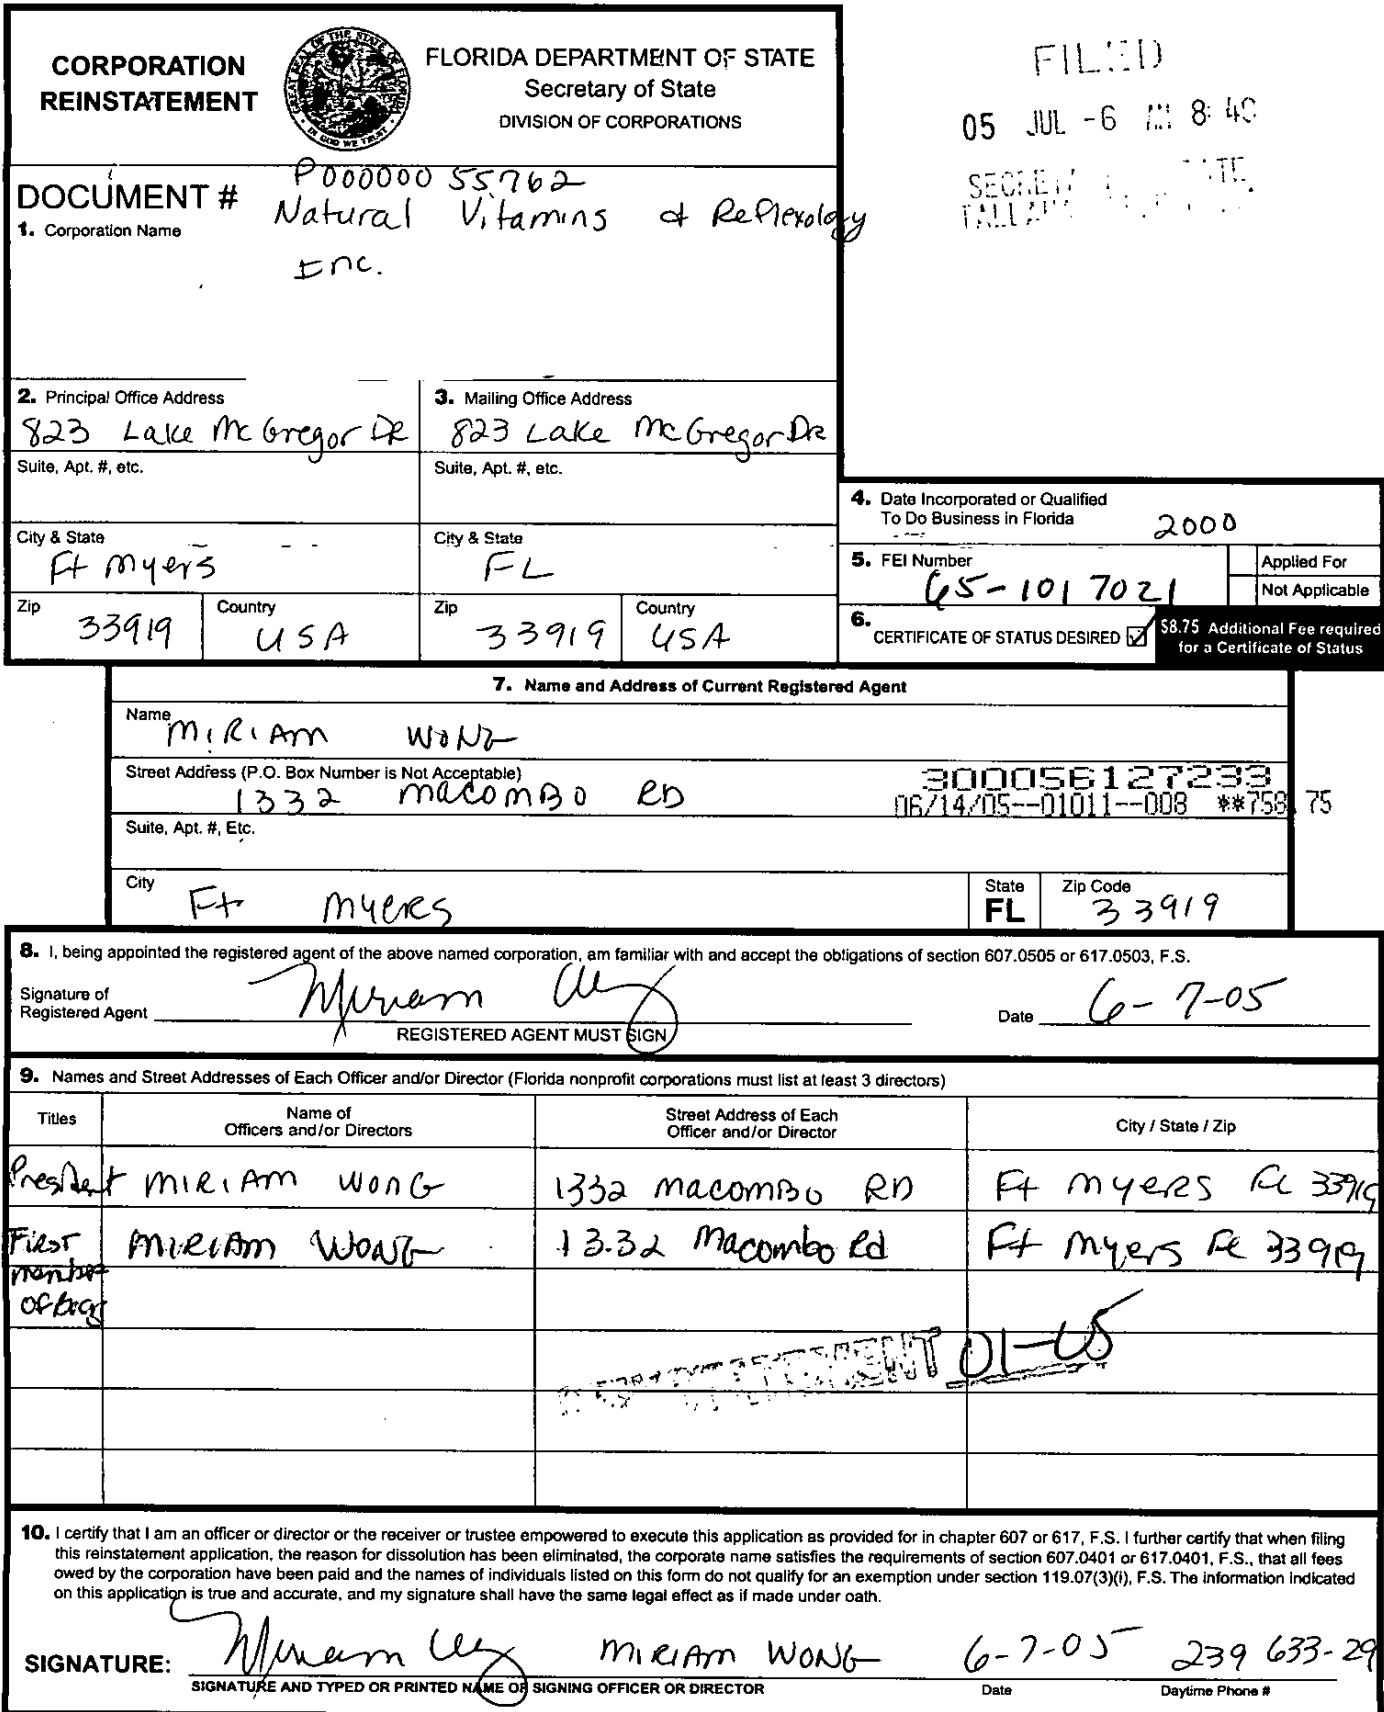 CORPORATION
REINSTATEMENT
GREAT SEAL OF THE STATE OF FLORIDA
IN GOD WE TRUST
FLORIDA DEPARTMENT OF STATE
Secretary of State
DIVISION OF CORPORATIONS
FILED
05 JUL -6 AM 8:49
DOCUMENT # P00000055762
1. Corporation Name Natural Vitamins & Reflexology
Inc.
2. Principal Office Address
823 Lake McGregor DR
3. Mailing Office Address
823 Lake McGregor DR
Suite, Apt. #, etc.
Suite, Apt. #, etc.
City & State
Ft Myers
City & State
FL
Zip 33919
Country USA
Zip 33919
Country USA
4. Date Incorporated or Qualified
To Do Business in Florida 2000
5. FEI Number
65-1017021
Applied For
Not Applicable
6. CERTIFICATE OF STATUS DESIRED ☑
$8.75 Additional Fee required
for a Certificate of Status
7. Name and Address of Current Registered Agent
Name MIRIAM WONG
Street Address (P.O. Box Number is Not Acceptable)
1332 MACOMBO RD
300056127233
06/14/05--01011--008 **758.75
Suite, Apt. #, Etc.
City Ft Myers
State
FL
Zip Code
33919
8. I, being appointed the registered agent of the above named corporation, am familiar with and accept the obligations of section 607.0505 or 617.0503, F.S.
Signature of
Registered Agent Miriam
REGISTERED AGENT MUST SIGN
Date 6-7-05
9. Names and Street Addresses of Each Officer and/or Director (Florida nonprofit corporations must list at least 3 directors)
Titles
Name of
Officers and/or Directors
Street Address of Each
Officer and/or Director
City / State / Zip
President MIRIAM WONG 1332 MACOMBO RD Ft Myers FL 33919
First MIRIAM WONG 1332 Macombo Rd Ft Myers FL 33919
member
of
REINSTATEMENT 01-05
10. I certify that I am an officer or director or the receiver or trustee empowered to execute this application as provided for in chapter 607 or 617, F.S. I further certify that when filing
this reinstatement application, the reason for dissolution has been eliminated, the corporate name satisfies the requirements of section 607.0401 or 617.0401, F.S., that all fees
owed by the corporation have been paid and the names of individuals listed on this form do not qualify for an exemption under section 119.07(3)(i), F.S. The information indicated
on this application is true and accurate, and my signature shall have the same legal effect as if made under oath.
SIGNATURE: Miriam MIRIAM WONG 6-7-05 239 633-29
SIGNATURE AND TYPED OR PRINTED NAME OF SIGNING OFFICER OR DIRECTOR
Date
Daytime Phone #